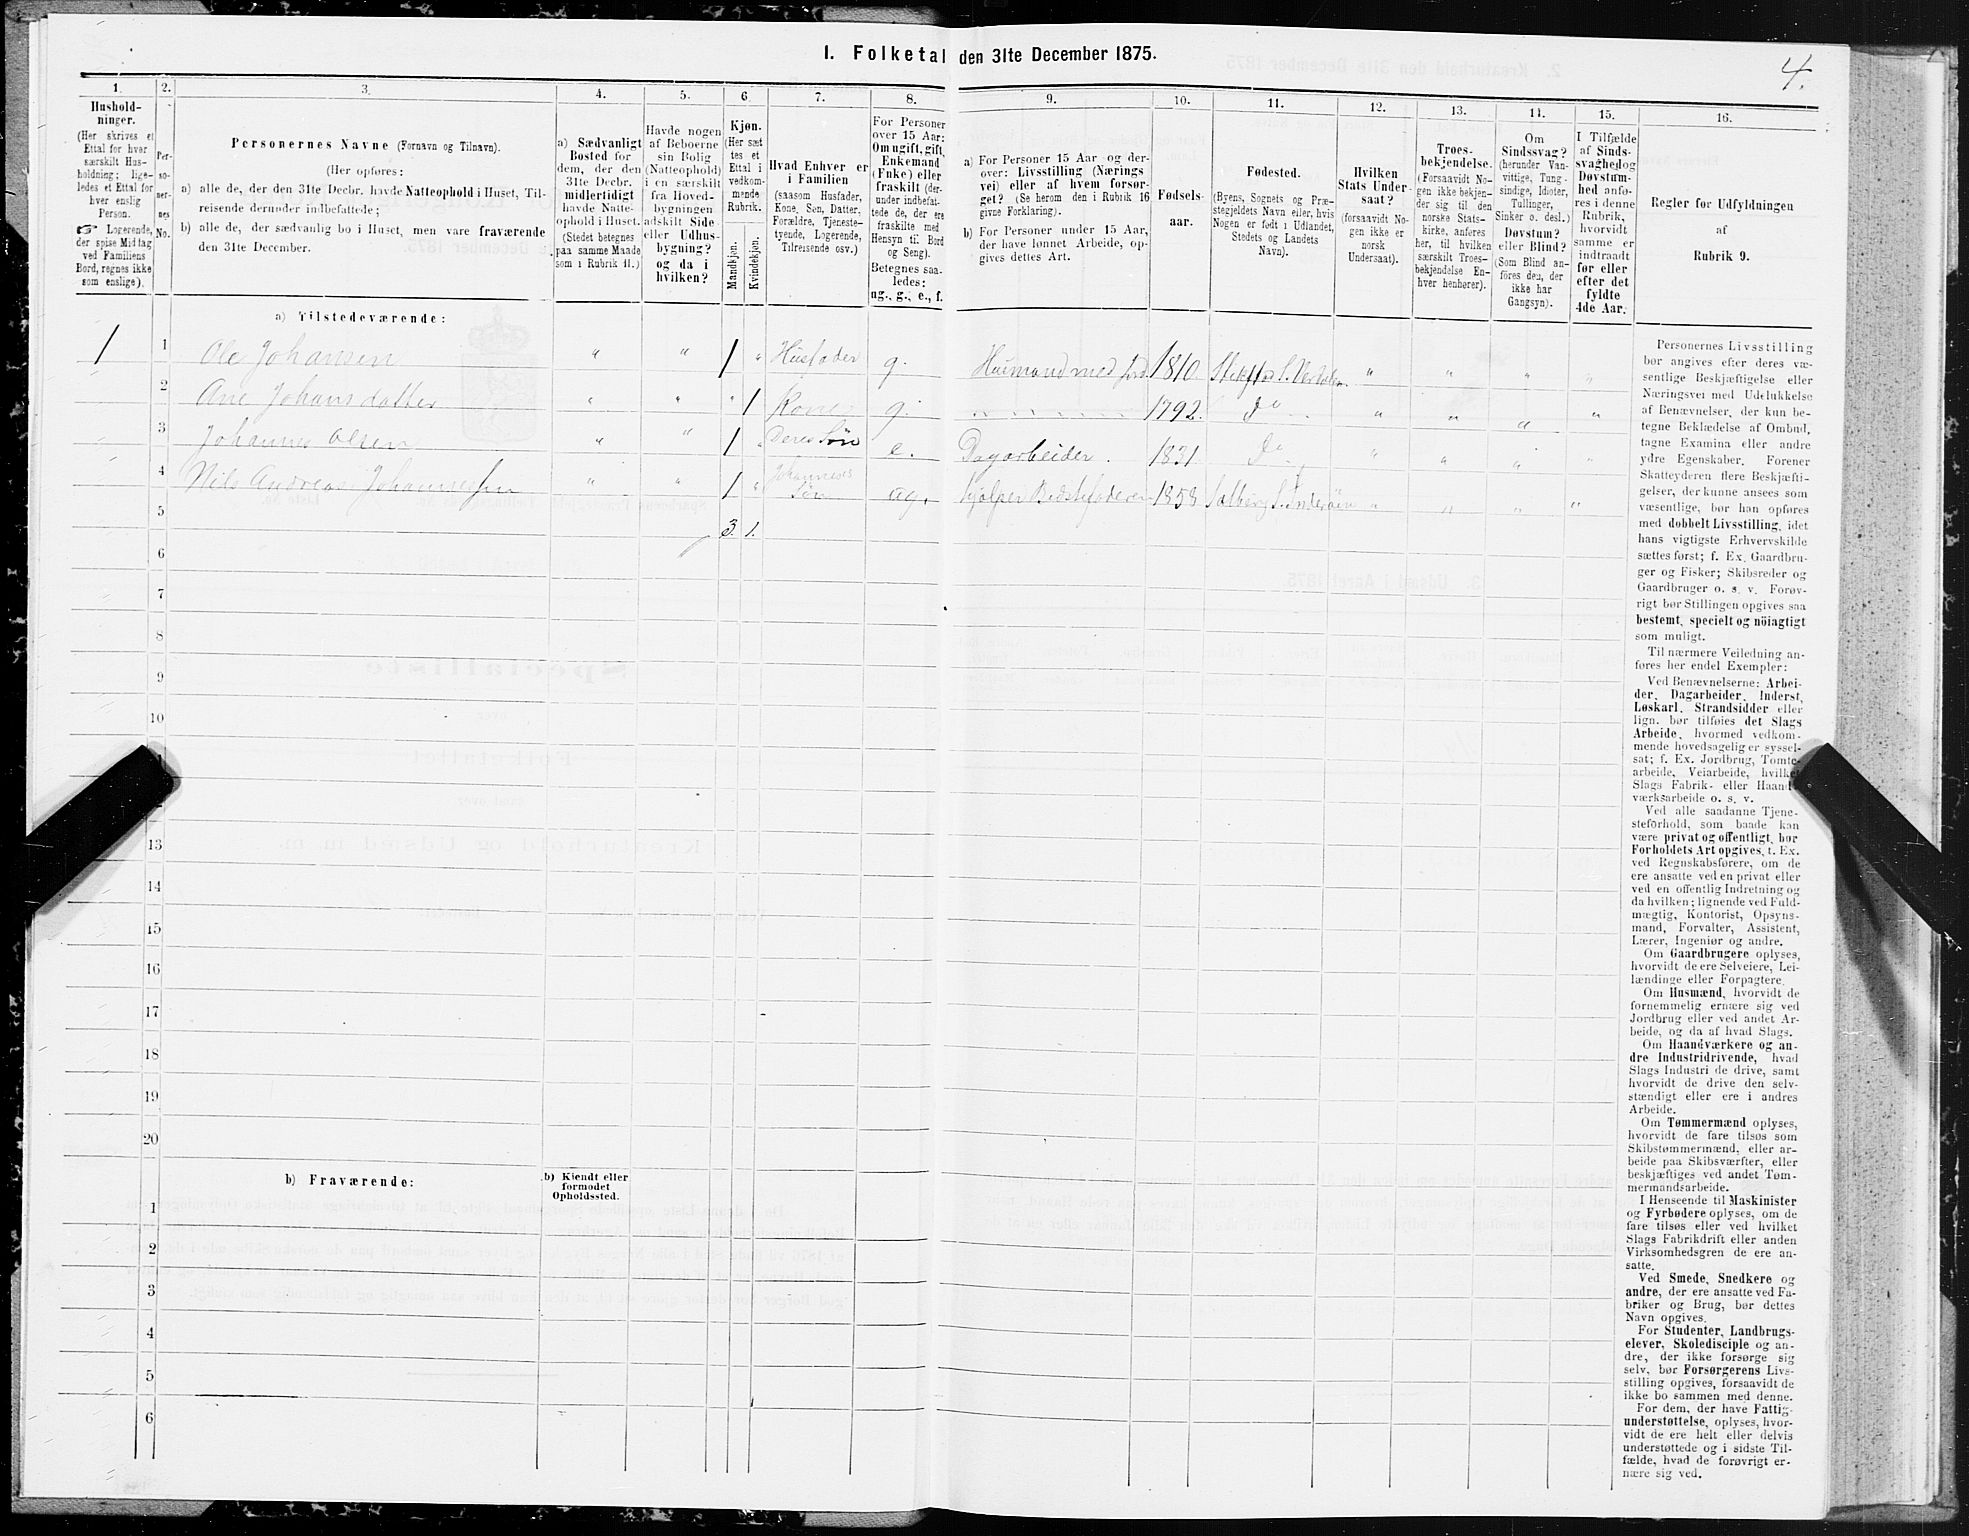 I. Folketal den 31te December 1875.
4.
1.
Hushold-
ninger.
(Her skrives et
Ettal for hver
særskilt Hus-
holdning; lige-
ledes et Ettal for
hver enslig
Person.
☞ Logerende,
der spise Middag
ved Familiens
Bord, regnes ikke
som enslige).
2.
Per-
so-
ner-
nes
No.
3.
Personernes Navne (Fornavn og Tilnavn).
(Her opføres:
a) alle de, der den 31te Decbr. havde Natteophold i Huset, Til-
reisende derunder indbefattede;
b) alle de, der sædvanlig bo i Huset, men vare fraværende
den 31te December.
4.
a) Sædvanligt
Bosted for
dem, der den
31te Decbr.
midlertidigt
havde Natte-
ophold i Huset.
(Stedet betegnes
paa samme Maade
som i Rubrik 11.)
5.
Havde nogen
af Beboerne
sin Bolig
(Natteophold)
i en særskilt
fra Hoved-
bygningen
adskilt Side
eller Udhus-
bygning?
og da i
hvilken?
6.
Kjøn.
(Her sæt
tes et
Ettal i
vedkom-
mende
Rubrik.
Mandkjøn.
Kvindekjøn.
7.
Hvad Enhver er
i Familien
(saasom Husfader,
Kone, Søn, Datter,
Forældre, Tjeneste-
tyende, Logerende,
Tilreisende osv.)
8.
For Personer
over 15 Aar:
Om ugift, gift,
Enkemand
(Enke) eller
fraskilt (der-
under indbefat-
tede de, der ere
fraskilte med
Hensyn til Bord
og Seng).
Betegnes saa-
ledes:
ug., g., e., f.
9.
a) For Personer 15 Aar og der-
over: Livsstilling (Nærings
vei) eller af hvem forsør-
get? (Se herom den i Rubrik 16
givne Forklaring).
b) For Personer under 15 Aar,
der have lønnet Arbeide, op-
gives dettes Art.
10.
Fødsels-
aar.
11.
Fødested.
(Byens, Sognets og Præ-
stegjeldets Navn eller, hvis
Nogen er født i Udlandet,
Stedets og Landets
Navn).
12.
Hvilken
Stats Under-
saat?
(forsaavidt No-
gen ikke er
norsk
Undersaat).
13.
Troes-
bekjendelse.
(Forsaavidt No-
gen ikke bekjen-
der sig til den
norske Stats-
kirke, anføres
her, til hvilken
særskilt Troes-
bekjendelse En-
hver henhører).
14.
Om
Sindssvag?
(herunder Van-
vittige, Tung-
sindige, Idioter,
Tullinger,
Sinker o. desl.)
Døvstum?
eller Blind?
(Som Blind an-
føres den, der
ikke har
Gangsyn).
15.
I Tilfælde
af Sinds-
svaghed og
Døvstum-
hed anfø-
res i denne
Rubrik,
hvorvidt
samme er
indtraadt
før eller
efter det
fyldte
4de Aar.
16.
Regler for Udfyldningen
af
Rubrik 9.
a) Tilstedeværende:
1 1 Ole Johansen " " 1 " Husfader g. Husmand med Jord 1810 " " " "
2 Ane Johansdatter " " " 1 Kone g. " " " " " 1792. Do " " " "
3 Johannes Olsen " " 1 " Deres Søn e. Dagarbeider. 1831 Do " " " "
4 Nils Andreas Johannessen " " 1 " Johanneses Søn ug. hjælper Bedstefaderen 1858 Salberg S. Inderøen " " " "
5 3. 1.
6
7
8
9
10
13
14
15
16
17
18
19
20
b) Fraværende:
b) Kjendt eller
formodet
Opholdssted.
1
2
3
4
5
6
Personernes Livsstilling
bør angives efter deres væ-
sentlige Beskjæftigelse eller
Næringsvei med Udelukkelse
af Benævnelser, der kun be-
tegne Beklædelse af Ombud,
tagne Examina eller andre
ydre Egenskaber. Forener
Skatteyderen flere Beskjæfti-
gelser, der kunne ansees som
væsentlige, bør han opføres
med dobbelt Livsstilling, idet
hans vigtigste Erhvervskilde
sættes først; f. Ex. Gaardbru-
ger og Fisker; Skibsreder og
Gaardbruger o. s. v. Forøv-
rigt bør Stillingen opgives saa
bestemt, specielt og nöiagtigt
som muligt.
Til nærmere Veiledning an-
føres her endel Exempler:
Ved Benævnelserne: Arbei-
der, Dagarbeider, Inderst,
Løskarl, Strandsidder eller
lign. bør tilføies det Slags
Arbeide, hvormed vedkom-
mende hovedsagelig er syssel-
sat; f. Ex. Jordbrug, Tomte-
arbeide, Veiarbeide, hvilket
Slags Fabrik- eller Haand-
værksarbeide o. s. v.
Ved alle saadanne Tjene-
steforhold, som baade kan
være privat og offentligt, bør
Forholdets Art opgives, t. Ex.
ved Regnskabsførere, om de
ere ansatte ved en privat eller
ved en offentlig Indretning og
da hvilken; lignende ved Fuld-
mægtig, Kontorist, Opsyns-
mand, Forvalter, Assistent,
Lærer, Ingeniør og andre.
Om Gaardbrugere oplyses,
hvorvidt de ere Selveiere, Lei-
lændinge eller Forpagtere.
Om Husmænd, hvorvidt de
fornemmelig ernære sig ved
Jordbrug eller ved andet Ar-
beide, og da af hvad Slags.
Om Haandværkere og an-
dre Industridrivende, hvad
Slags Industri de drive, samt
hvorvidt de drive den selv-
stændigt eller ere i andres
Arbeide.
Om Tømmermænd oplyses,
hvorvidt de fare tilsøs som
Skibstømmermænd, eller ar-
beide paa Skibsværfter, eller
beskjæftiges ved andet Tøm-
mermandsarbeide.
I Henseende til Maskinister
og Fyrbødere oplyses, om de
fare tilsøs eller ved hvilket
Slags Fabrikdrift eller anden
Virksomhedsgren de ere an-
satte.
Ved Smede, Snedkere og
andre, der ere ansatte ved Fa-
briker og Brug, bør dettes
Navn opgives.
For Studenter, Landbrugs-
elever, Skoledisciple og an-
dre, der ikke forsørge sig
selv, bør Forsørgerens Livs-
stilling opgives, forsaavidt de
ikke bo sammen med denne.
For dem, der have Fattig-
understøttelse, oplyses, hvor-
vidt de ere helt eller delvis
understøttede og i sidste Til-
fælde, hvad de forøvrigt er-
nære sig ved.